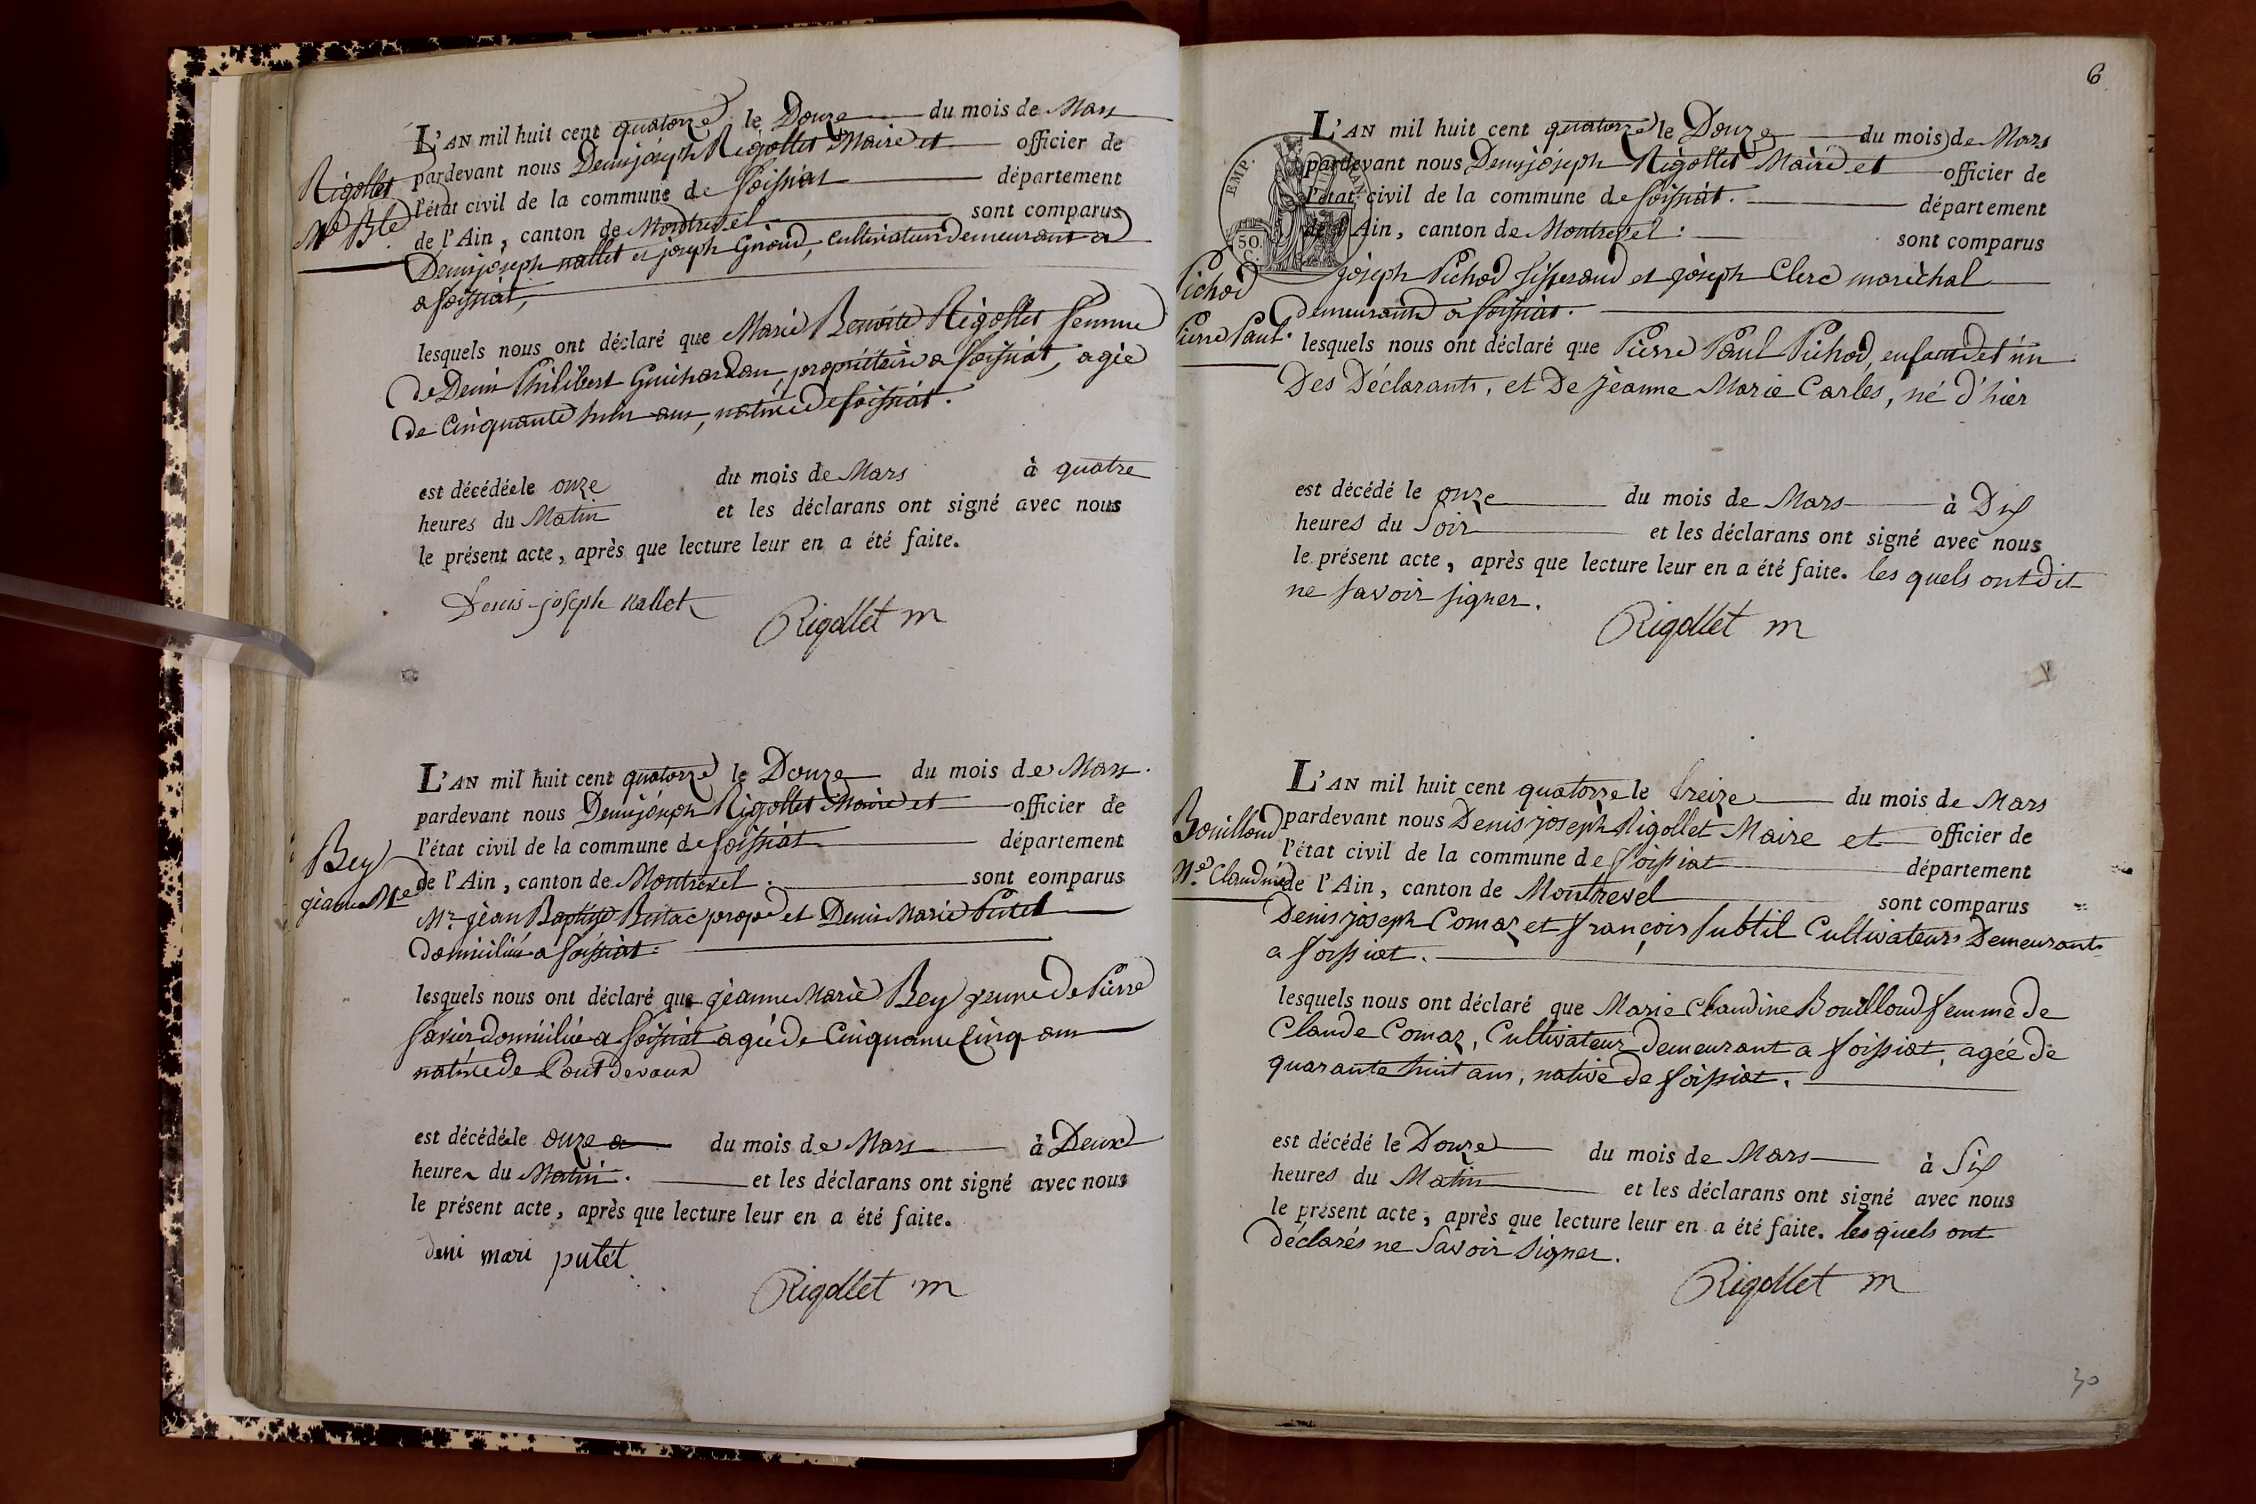 L'AN mil huit cent quatorze le Douze du mois de Mars
pardevant nous Denis joseph Rigollet Maire et officier de
l'état civil de la commune de foissiat département
de l'Ain, canton de Montrevel sont comparus
Denis joseph nallet et joseph Giroud, Cultivateurs demeurant a
a foissiat,
Rigollet
Me Bte
lesquels nous ont déclaré que Marie Benoite Rigollet femme
de Denis Philibert Guichardan propriétaire a foissiat, agée
de Cinquante huit ans, native de foissiat.
est décédée le onze du mois de Mars à quatre
heures du Matin et les déclarans ont signé avec nous
le présent acte, après que lecture leur en a été faite.
Denis joseph nallet
Rigollet m
L'AN mil huit cent quatorze le Douze du mois de Mars.
pardevant nous Denis joseph Rigollet Maire et officier de
l'état civil de la commune de foissiat département
de l'Ain, canton de Montrevel. sont comparus
Mr. jèan Baptiste propre et Denis Marie Putet
domiciliés a foissiat.
Bey
jèanne Mie
lesquels nous ont déclaré que jèanne Marie Bey de Pierre
domiciliée a foissiat agée de Cinquante Cinq ans
native de Pont devaux
est décédée le onze du mois de Mars à Deux
heures du Matin. et les déclarans ont signé avec nous
le présent acte, après que lecture leur en a été faite.
deni mari putet
Rigollet m
6
EMP.
50.
C.
L'AN mil huit cent quatorze le Douze du mois de Mars
pardevant nous Denis joseph Rigollet Maire et officier de
l'état civil de la commune de foissiat. département
de l'Ain, canton de Montrevel. sont comparus
joseph Pichod tisserand et joseph Clerc maréchal
demeurants a foissiat.
Pichod
Pierre Paul.
lesquels nous ont déclaré que Pierre Paul Pichod, enfant de l'un
Des Déclarants, et De jeanne Marie Carles, né d'hier
est décédé le onze du mois de Mars à Dix
heures du Soir et les déclarans ont signé avec nous
le présent acte, après que lecture leur en a été faite. les quels ont dit
ne savoir signer.
Rigollet m
L'AN mil huit cent quatorze le treize du mois de Mars
pardevant nous Denis joseph Rigollet Maire et officier de
l'état civil de la commune de foissiat département
de l'Ain, canton de Montrevel sont comparus
Denis joseph Comaz et françois Subtil Cultivateurs Demeurants
a foissiat.
Bouilloud
Me. Claudine
lesquels nous ont déclaré que Marie Claudine Bouilloud femme de
Claude Comaz, Cultivateur demeurant a foissiat, agée de
quarante huit ans, native de foissiat.
est décédé le Douze du mois de Mars à Six
heures du Matin et les déclarans ont signé avec nous
le présent acte, après que lecture leur en a été faite. les quels ont
déclarés ne Savoir Signer.
Rigollet m
30